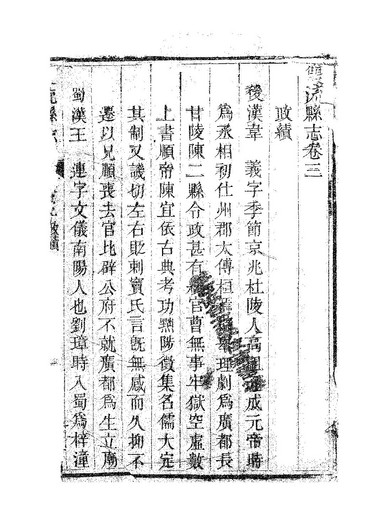 雙流縣志卷三
政績
後漢韋 義字季節京兆杜陵人高祖成元帝時
為丞相初仕州郡太傅桓理劇為廣都長
甘陵陳二縣令政甚有官曹無事牢獄空虛數
上書順帝陳宜依古典考功黜陟徵集名儒大定
其制又議切左右貶刺竇氏言既無感而久抑不
遷以兄順喪去官比辟公府不就廣都為生立廟
蜀漢王 連字文儀南陽人也劉璋時入蜀為梓潼